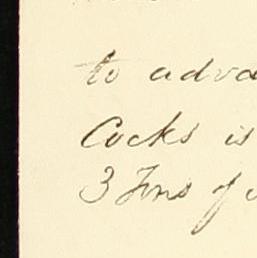 to adva
Cocks is
3 Tons of